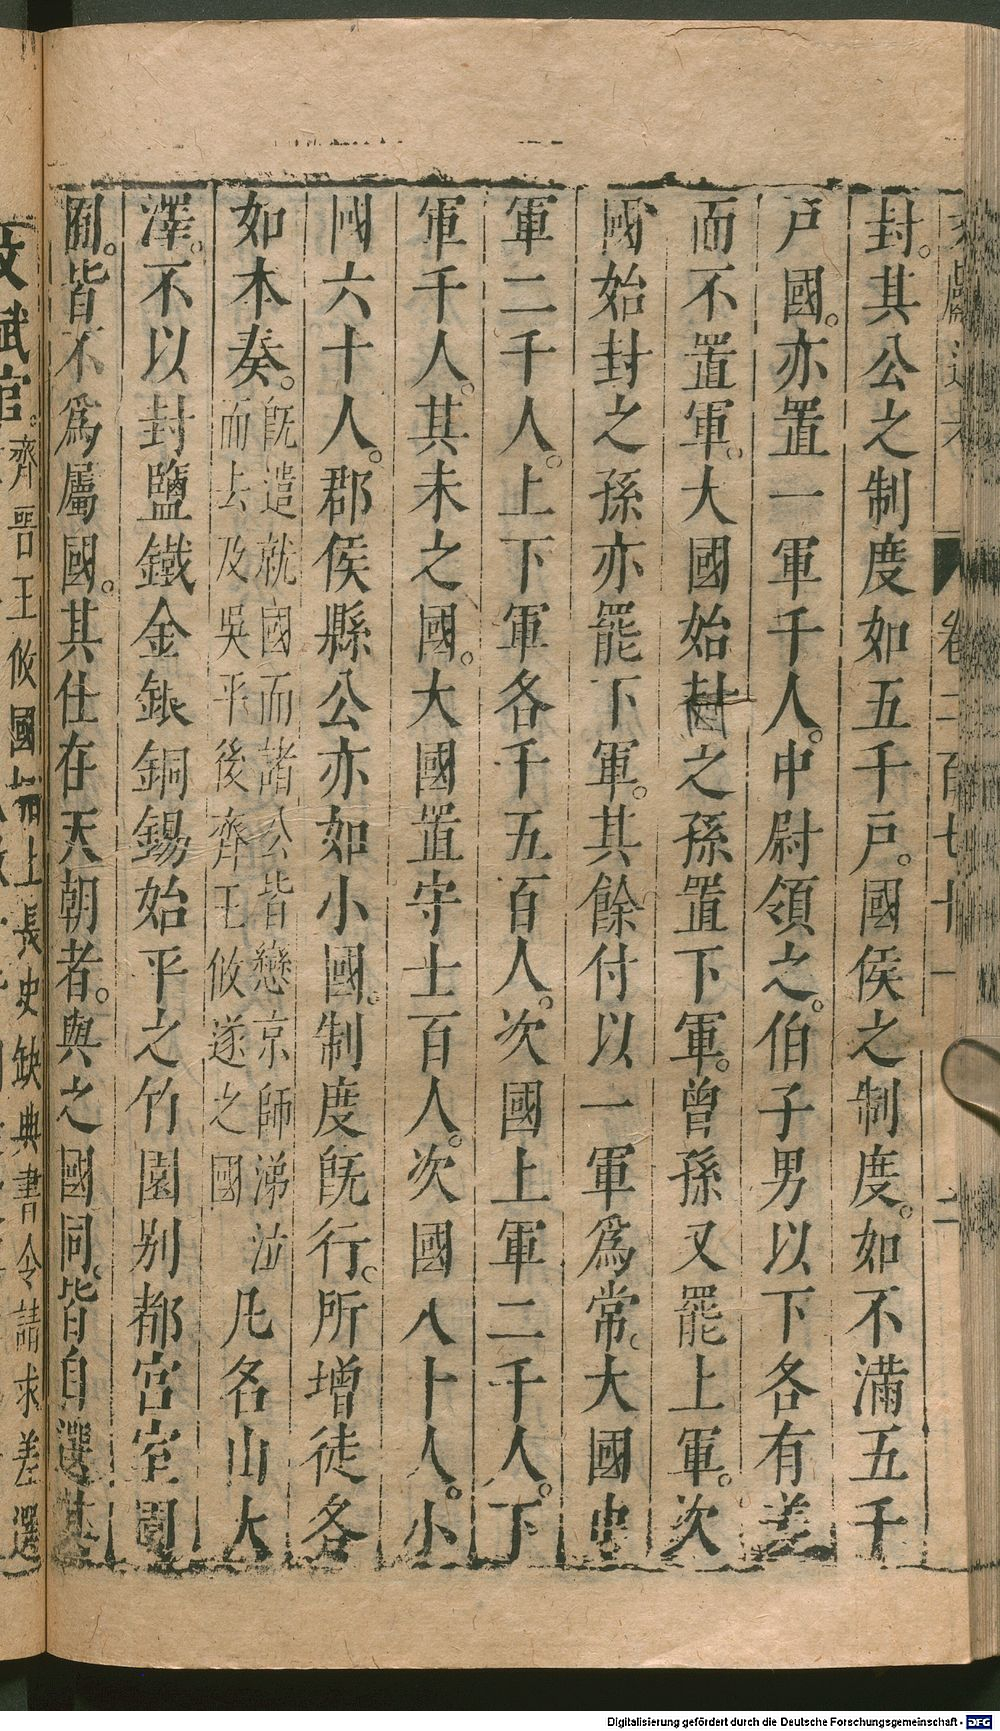 文獻通考 卷二百七十一 二
封。其公之制度如五千戶。國侯之制度。如不滿五千
戶國。亦置一軍千人。中尉領之。伯子男以下各有差
而不置軍。大國始封之孫置下軍。曾孫又罷上軍。次
國始封之孫亦罷下軍。其餘付以一軍爲常。大國中
軍二千人。上下軍各千五百人。次國上軍二千人。下
軍千人。其未之國。大國置守士百人。次國八十人。小
國六十人。郡侯縣公亦如小國。制度旣行。所增徒各
如本奏。旣遣就國而諸公皆戀京師涕泣
而去及吳平後齊王攸遂之國
凡名山大
澤。不以封鹽鐵金銀銅錫始平之竹園別都宮室園
囿。皆不爲屬國。其仕在天朝者。與之國同。皆自選其
文武官。齊王攸國相上長史缺典書令請求差選
Digitalisierung gefördert durch die Deutsche Forschungsgemeinschaft - DFG